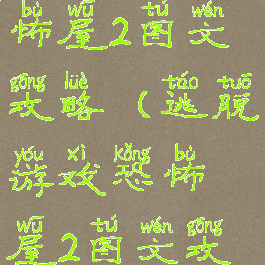 bù wū tú wén
怖屋2图文
gōng lüè táo tuō
攻略（逃脱
yóu xì kǒng bù
游戏恐怖
wū tú wén gōng
屋2图文攻